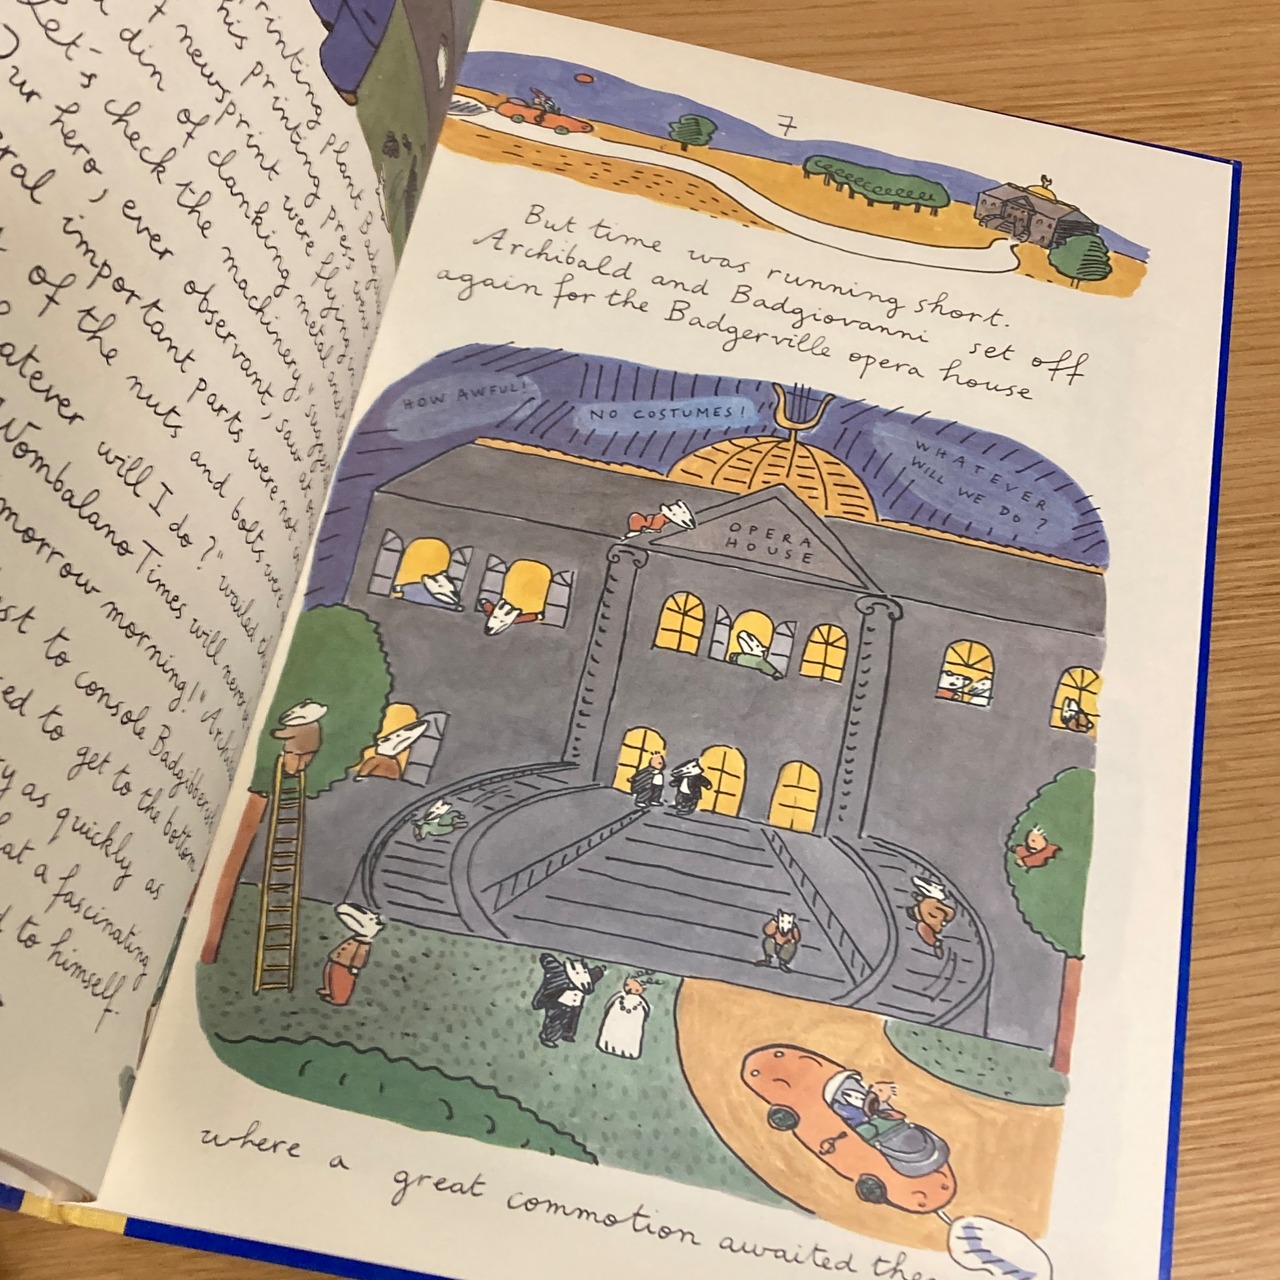 printing plant
this printing press were
t newsprint were flying
din of clanking metal
Let's check the machinery,"
Our hero, ever observant, saw
eral important parts were not
of the nuts and bolts were
atever will I do?" wailed
Wombalano Times will never
morrow morning!"
st to console Badgibberish
ed to get to the bottom
ry as quickly as
hat a fascinating
d to himself.
7
But time was running short.
Archibald and Badgiovanni set off
again for the Badgerville opera house
HOW AWFUL!
NO COSTUMES!
WHATEVER
WILL WE
DO?
OPERA
HOUSE
where a great commotion awaited